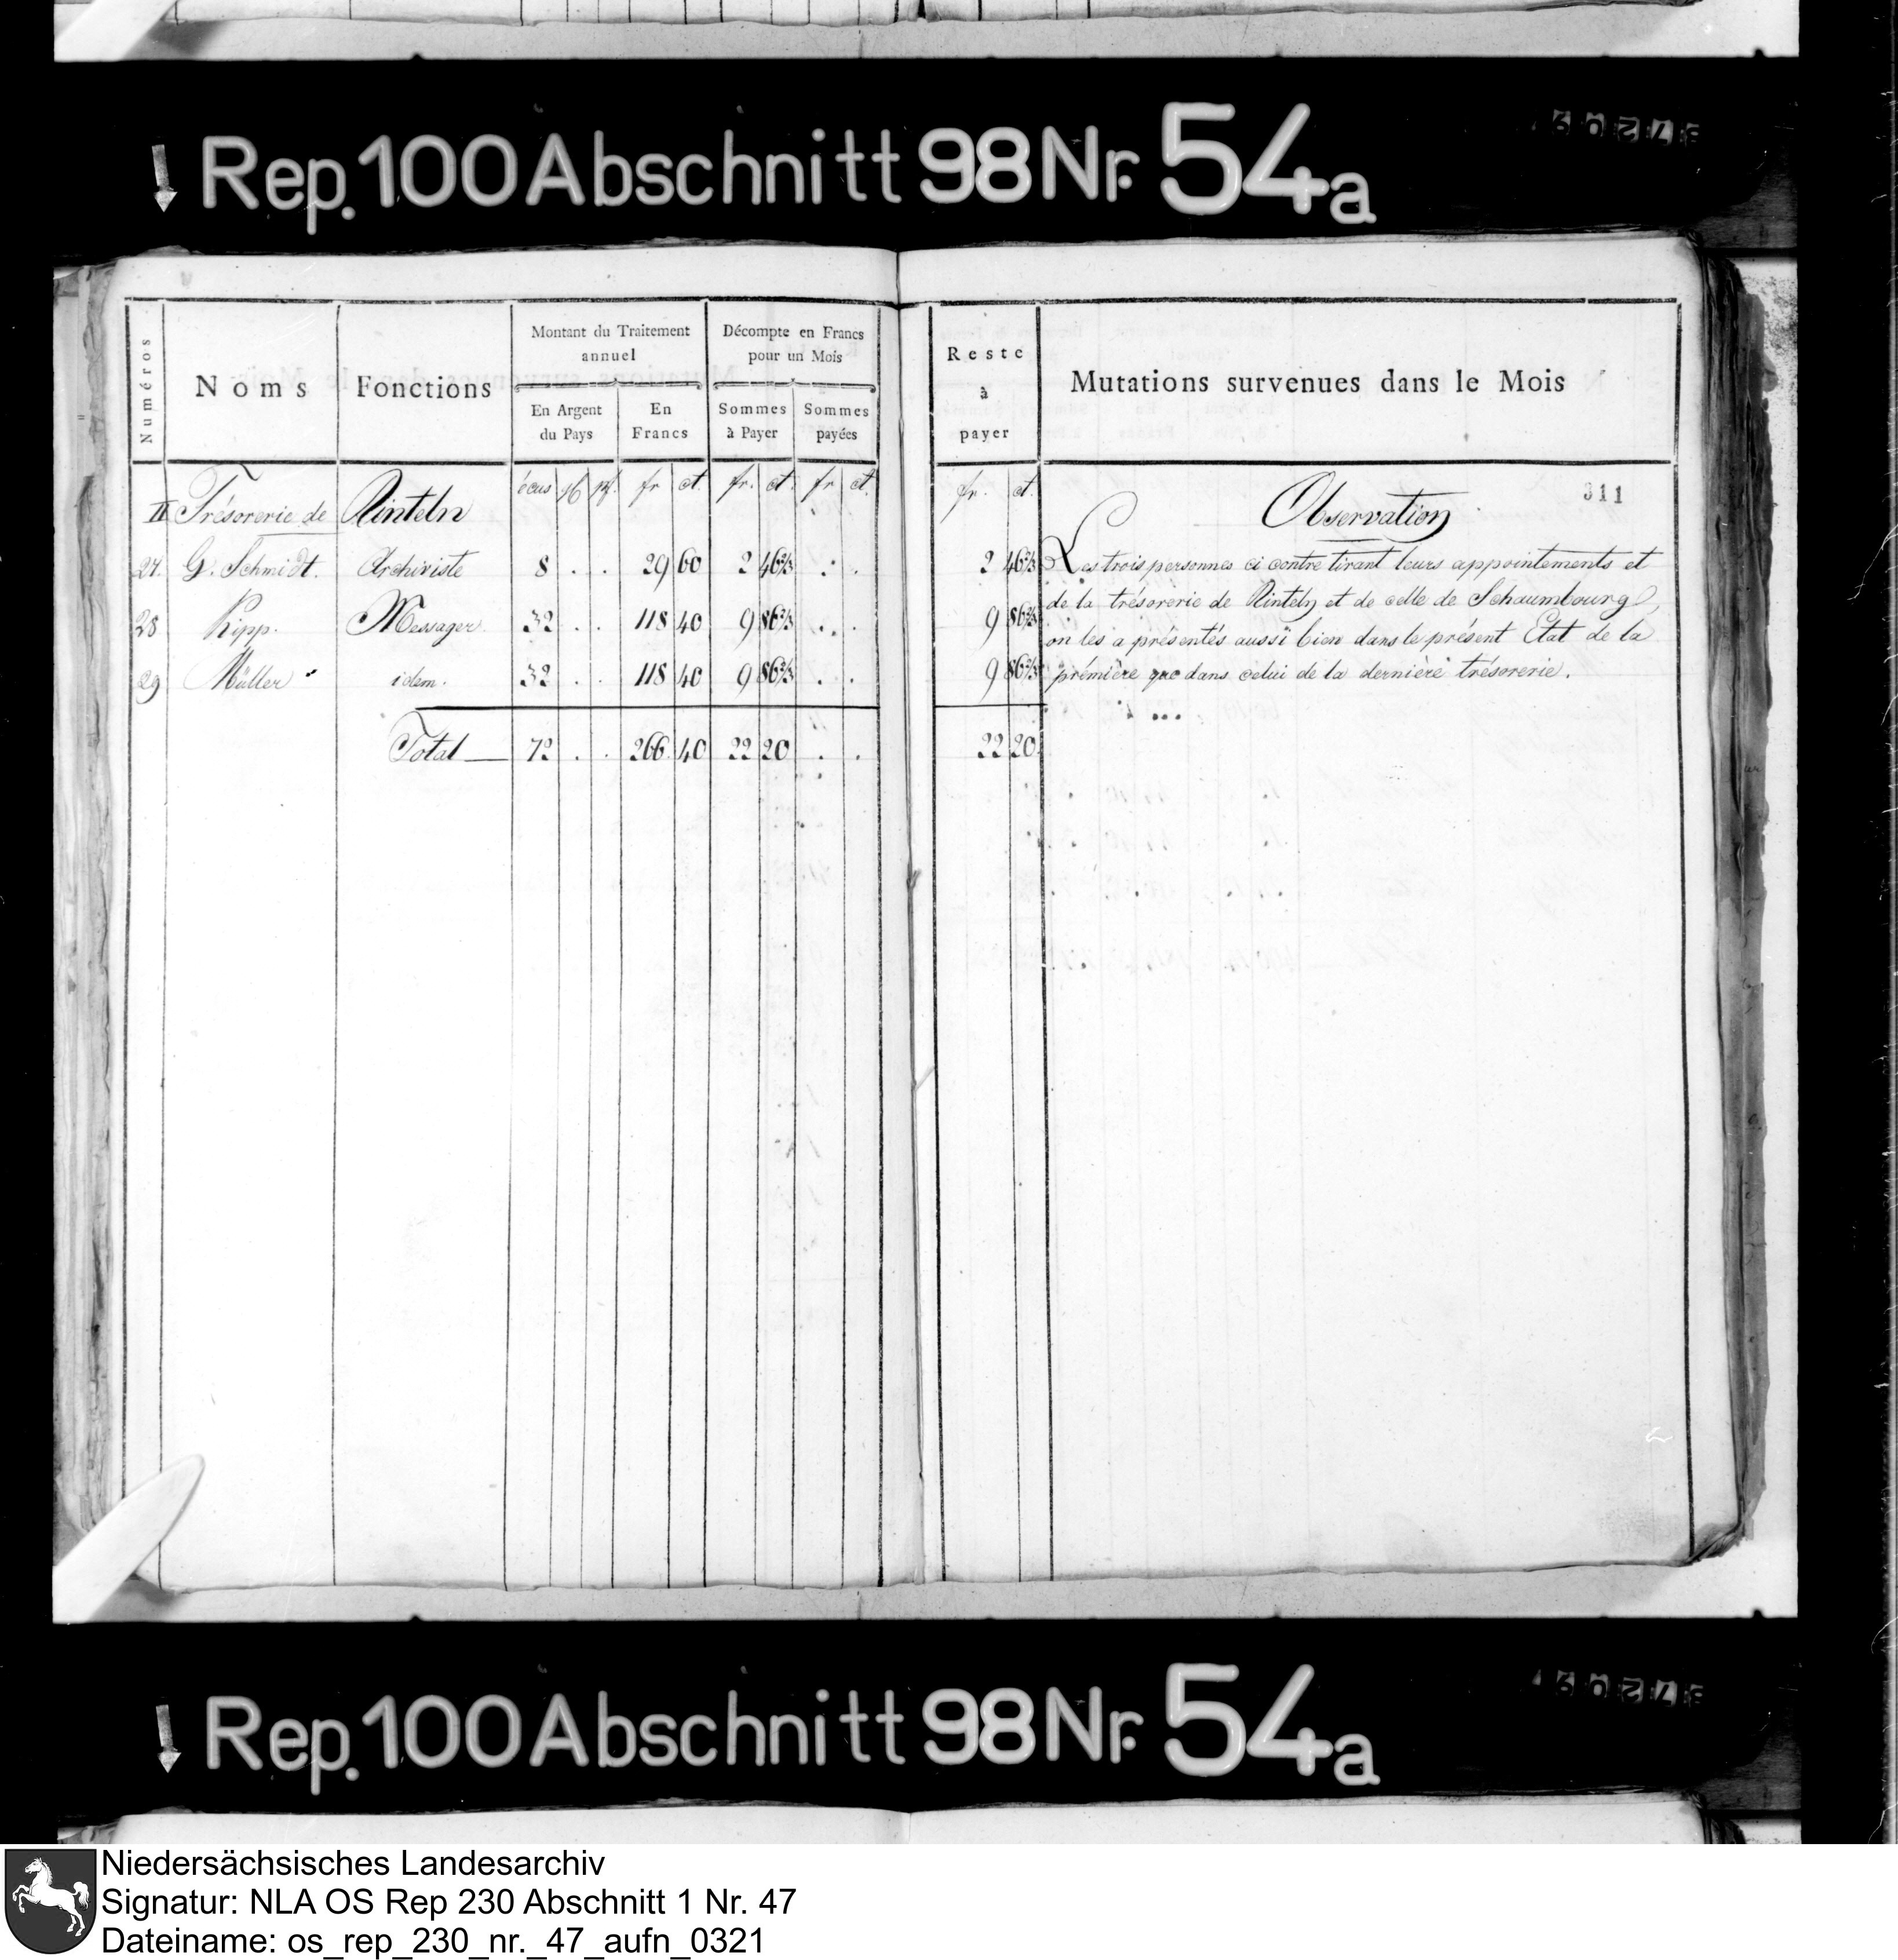 Rep. 100 Abschnitt 98 Nr. 54a
Numéros
Noms
Fonctions
Montant du Traitement
annuel
En Argent
du Pays
En
Francs
Décompte en Francs
pour un Mois
Sommes
à Payer
Sommes
payées
Reste
à
payer
Mutations survenues dans le Mois
311
écus fr ct. fr. ct. fr ct. fr. ct.
II Trésorerie de Rinteln
27. G. Schmidt. Archiviste 8 . . 29 60 2 46 2/3 . . 2 46 2/3
28 Ripp. Messager 32 . . 118 40 9 86 2/3 . . 9 86 2/3
29 Müller idem. 32 . . 118 40 9 86 2/3 . . 9 86 2/3
Total 72 . . 266 40 22 20 . . 22 20
Observation
Les trois personnes ci contre tirant leurs appointements et
de la trésorerie de Rinteln et de celle de Schaumbourg,
on les a présentés aussi bien dans le présent Etat de la
première que dans celui de la dernière trésorerie.
Rep. 100 Abschnitt 98 Nr. 54a
Niedersächsisches Landesarchiv
Signatur: NLA OS Rep 230 Abschnitt 1 Nr. 47
Dateiname: os_rep_230_nr._47_aufn_0321